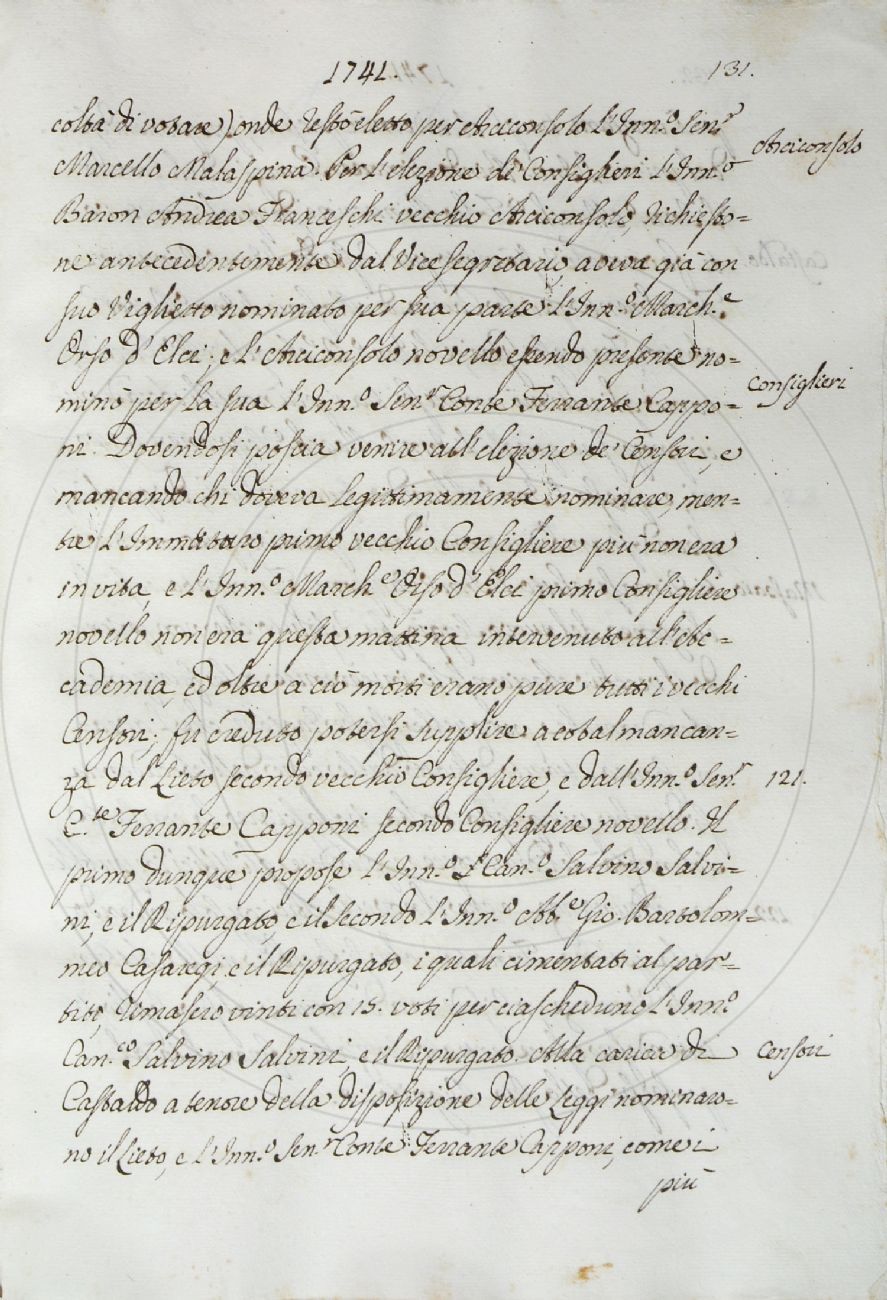 1741.
131.
coltà di votare) onde restò eletto per Arciconsolo l'Inn.º Sen.r
Arciconsolo
Marcello Malaspina. Per l'elezione de' Consiglieri l'Inn.º
Baron Andrea Franceschi vecchio Arciconsolo, richiesto=
ne antecedentemente dal Vicesegretario aveva già con
suo Viglietto nominato per sua parte l'Inn.º March.e
Orso d'Elci; e l'Arciconsolo novello essendo presente no=
Consiglieri
minò per la sua l'Inn.º Sen.r Conte Ferrante Cappo=
ni. Dovendosi poscia venire all'elezione de' Censori, e
mancando chi doveva legittimamente nominare, men=
tre l'Immaturo primo vecchio Consigliere più non era
in vita, e l'Inn.º March.e Orso d'Elci primo Consigliere
novello non era questa mattina intervenuto all'Ac=
cademia, ed oltre a ciò morti erano pure tutti i vecchi
Censori; fu creduto potersi supplire a cotal mancan=
za dal Lieto secondo vecchio Consigliere, e dall'Inn.º Sen.r
121.
C.te Ferrante Capponi secondo Consigliere novello. Il
primo dunque propose l'Inn.º S.r Can.º Salvino Salvi=
ni, e il Ripurgato, e il secondo l'Inn.º Ab.e Gio. Bartolom=
meo Casaregi, e il Ripurgato, i quali cimentati al par=
tito, rimasero vinti con 15. voti per ciascheduno l'Inn.º
Can.co Salvino Salvini, e il Ripurgato. Alla carica di
Censori
Castaldo a tenore della disposizione delle Leggi nominaro=
no il Lieto, e l'Inn.º Sen.r Conte Ferrante Capponi, come i
più